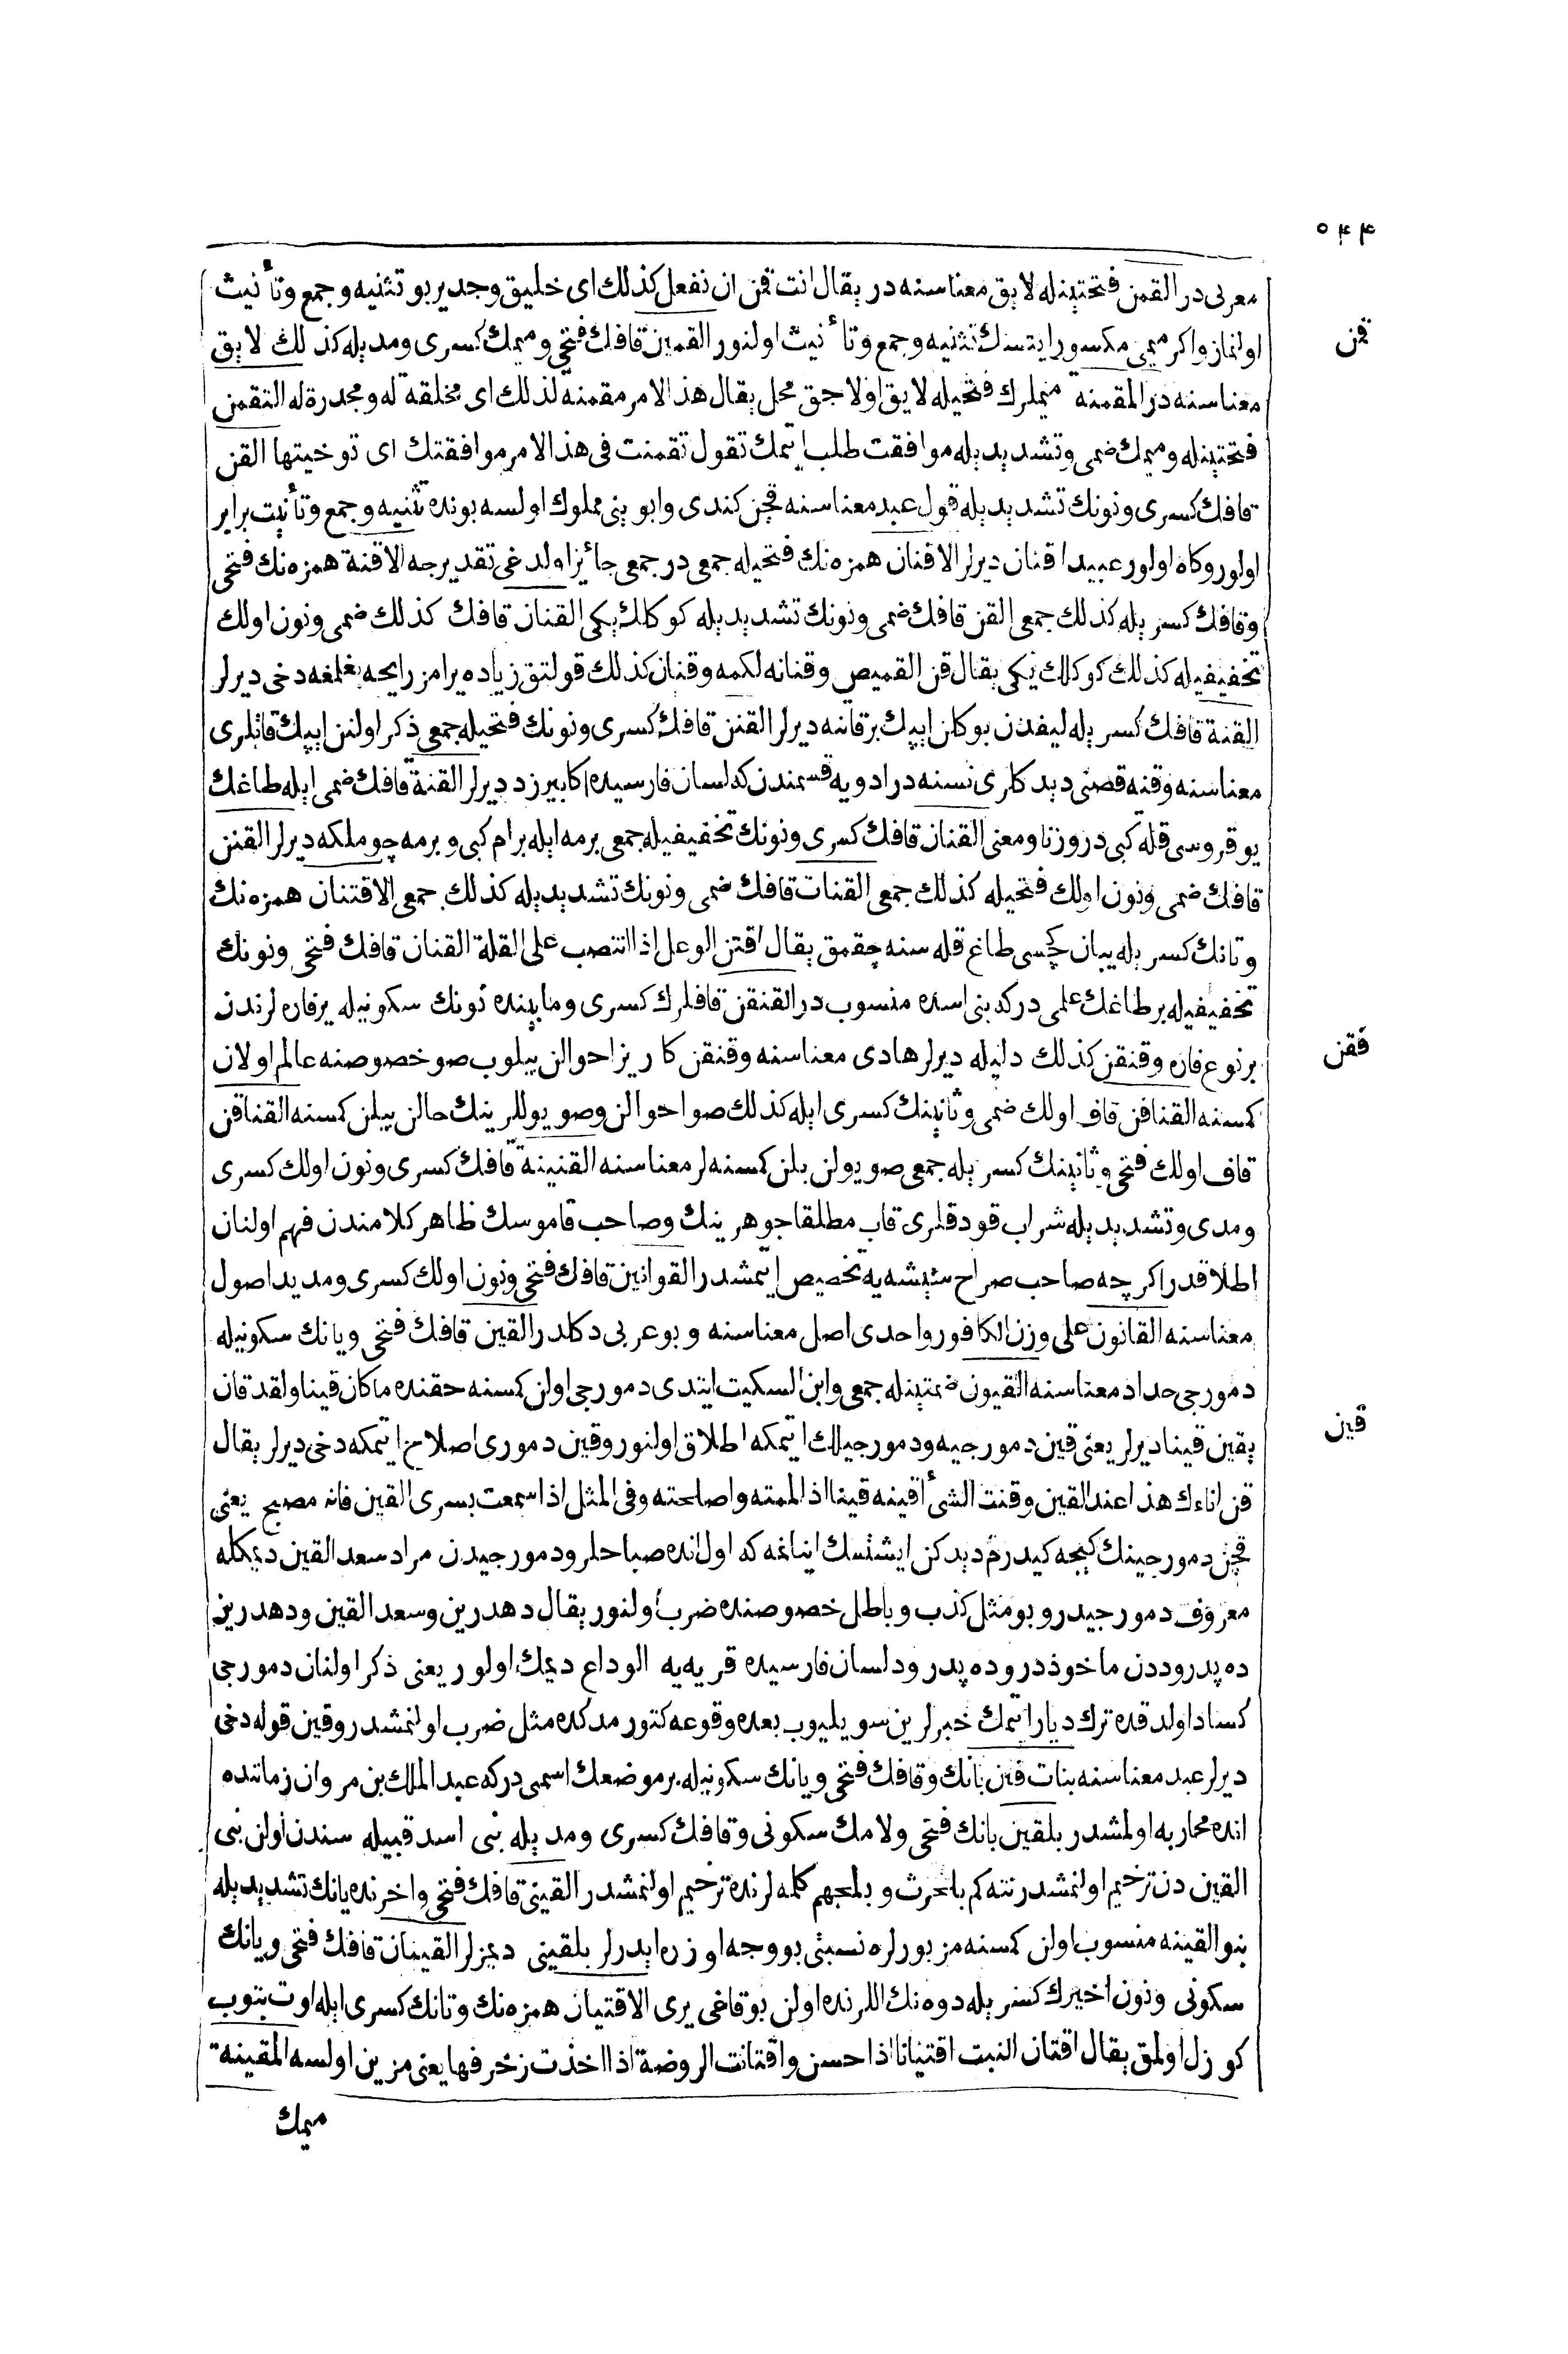 ٥٤٤
معربی در القمن فتحتینله لایق معناسنه در یقال انت قمن ان تفعل كذلك ای خلیق وجدیر بو تثنیه و جمع وتأنیث
قمن
اولنماز واكر میمی مكسور ایتسك تثنیه و جمع وتأنیث اولنور القمین قافك فتحی و میمك كسری ومدیله كذلك لایق
معناسنه در المقمنه میملرك فتحیله لایق اولاجق محل یقال هذا الامر مقمنه لذلك ای مخلقة له و مجدرة له التقمن
فتحتینله ومیمك ضمی وتشدیدیله موافقت طلب ایتمك تقول تقمنت فی هذا الامر موافقتك ای توخیتها القن
قافك كسری ونونك تشدیدیله قول عبد معناسنه قچن كندی وابوینی مملوك اولسه بونده تثنیه و جمع وتأنیت برابر
اولور وكاه اولور عبید اقنان دیرلر الاقنان همزه نك فتحیله جمعی در جمعی جائز اولدغی تقدیرجه الاقنة همزه نك فتحی
وقافك كسریله كذلك جمعی القن قافك ضمی ونونك تشدیدیله كوكلك یكی القنان قافك كذلك ضمی ونون اولك
تخفیفیله كذلك كوكلك یكی یقال قن القمیص وقنانه لكمه وقنان كذلك قولتق زیاده یرامز رایحه یغلغه دخی دیرلر
القنة قافك كسریله لیفدن بوكلن ایپك برقاتنه دیرلر القنن قافك كسری ونونك فتحیله جمعی ذكر اولنن ایپك قاتلری
معناسنه وقنه قصنی دیدكلری نسنه در ادویه قسمندن كه لسان فارسیده اكابیرزد دیرلر القنة قافك ضمی ایله طاغك
یوقروسی قله كبی در وزنا ومعنی القنان قافك كسری ونونك تخفیفیله جمعی برمه ایله برام كبی و برمه چوملكه دیرلر القنن
قافك ضمی ونون اولك فتحیله كذلك جمعی القنات قافك ضمی ونونك تشدیدیله كذلك جمعی الاقتنان همزه نك
وتانك كسریله یبان كچسی طاغ قله سنه چقمق یقال اقتن الوعل اذا انتصب علی القلة القنان قافك فتحی ونونك
تخفیفیله بر طاغك علمی در كه بنی اسده منسوب در القنقن قافلرك كسری وما بینده نونك سكونیله یرفاره لرندن
قفن
برنوع فاره وقنقن كذلك دلیله دیرلر هادی معناسنه وقنقن كاریز احوالن بیلوب صو خصوصنه عالم اولان
كمسنه القناقن قاف اولك ضمی وثانینك كسری ایله كذلك صو احوالن وصو یوللرینك حالن بیلن كمسنه القناقن
قاف اولك فتحی و ثانینك كسریله جمعی صو یولن بلن كمسنه لر معناسنه القنینة قافك كسری ونون اولك كسری
ومدی وتشدیدیله شراب قودقلری قاب مطلقا جوهرینك وصاحب قاموسك ظاهر كلامندن فهم اولنان
اطلاقدر اكرچه صاحب صراح شیشه یه تخصیص ایتمشدر القوانین قافك فتحی ونون اولك كسری ومدیله اصول
معناسنه القانون علی وزن الكافور واحدی اصل معناسنه و بو عربی دكلدر القین قافك فتحی و یانك سكونیله
دمورجی حداد معناسنه القیون ضمتینله جمعی وابن السكیت ایتدی دمورجی اولن كمسنه حقنده ماكان قینا ولقد قان
قین
یقین قینا دیرلر یعنی قین دمورجیه ودمورجیلك ایتمكه اطلاق اولنور وقین دموری اصلاح ایتمكه دخی دیرلر یقال
قن اناءك هذا عند القین وقنت الشیٔ أقینه قینا اذا لممته واصلحته وفی المثل اذا سمعت بسری القین فانه مصبح یعنی
قچن دمورجینك كیجه كیدرم دیدكن ایشتسك اینانمه كه اول انده صباحلر ودمورجیدن مراد سعد القین دیمكله
معروف دمورجیدر وبو مثل كذب و باطل خصوصنده ضرب اولنور یقال دهدرین وسعد القین ودهدرین
ده پدروددن ماخوذدر وده پدرود لسان فارسیده قریه یه الوداع دیمك اولور یعنی ذكر اولنان دمورجی
كساد اولدقده ترك دیار ایتمك خبرلرین سویلیوب بعده وقوعه كتورمدكده مثل ضرب اولنمشدر وقین قوله دخی
دیرلر عبد معناسنه بنات قین بانك وقافك فتحی و یانك سكونیله بر موضعك اسمی در كه عبد الملك بن مروان زماننده
انده محاربه اولمشدر بلقین بانك فتحی ولامك سكونی وقافك كسری ومدیله بنی اسد قبیله سندن اولن بنی
القین دن ترخیم اولنمشدر نته كم بلحرث و بلهجیم كلمه لرنده ترخیم اولنمشدر القینی قافك فتحی واخرنده یانك تشدیدیله
بنو القینه منسوب اولن كمسنه مزبورلره نسبتی بو وجه اوزره ایدرلر بلقینی دیمزلر القینان قافك فتحی و یانك
سكونی ونون اخیرك كسریله دوه نك اللرنده اولن بوقاغی یری الاقتیان همزه نك وتانك كسری ایله اوت بتوب
كوزل اولمق یقال اقتان النبت اقتیانا اذا حسن واقتانت الروضة اذا اخذت زخرفها یعنی مزین اولسه المقینه
میمك